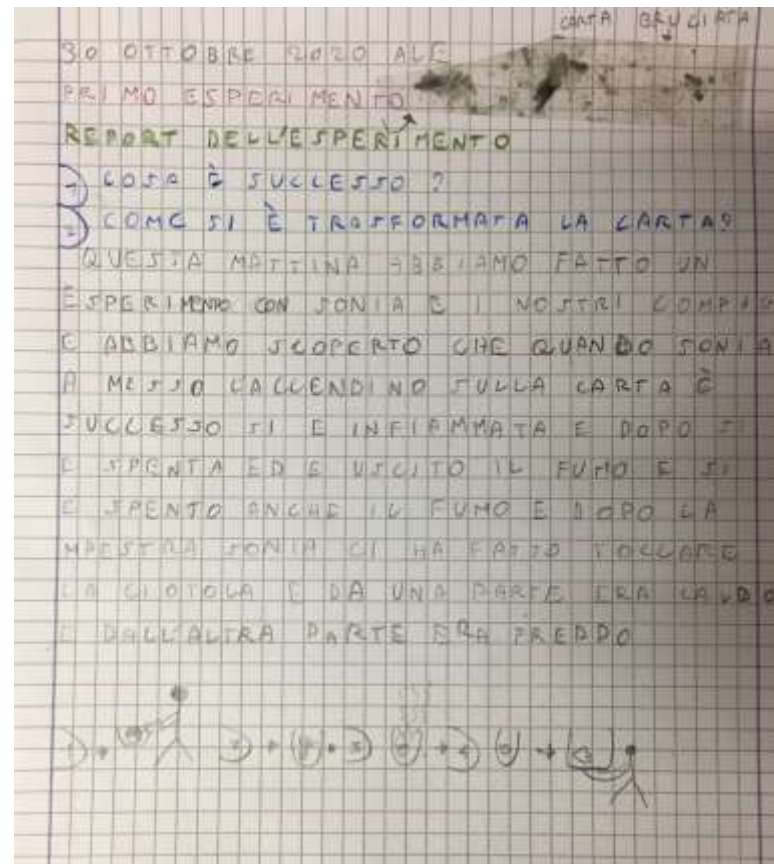 CARTA BRUCIATA
30 OTTOBRE 2020 ALE
PRIMO ESPERIMENTO
REPORT DELL'ESPERIMENTO
1) COSA È SUCCESSO ?
2) COME SI È TRASFORMATA LA CARTA?
QUESTA MATTINA ABBIAMO FATTO UN
ESPERIMENTO CON SONIA E I NOSTRI
E ABBIAMO SCOPERTO CHE QUANDO SONIA
A MESSO L'ACCENDINO SULLA CARTA È
SUCCESSO SI E INFIAMMATA E DOPO SI
E SPENTA ED E USCITO IL FUMO E SI
E SPENTO ANCHE IL FUMO E DOPO LA
MAESTRA SONIA CI HA FATTO TOCCARE
LA CIOTOLA E DA UNA PARTE ERA CALDO
E DALL'ALTRA PARTE ERA FREDDO
1) 2) 3) 4)